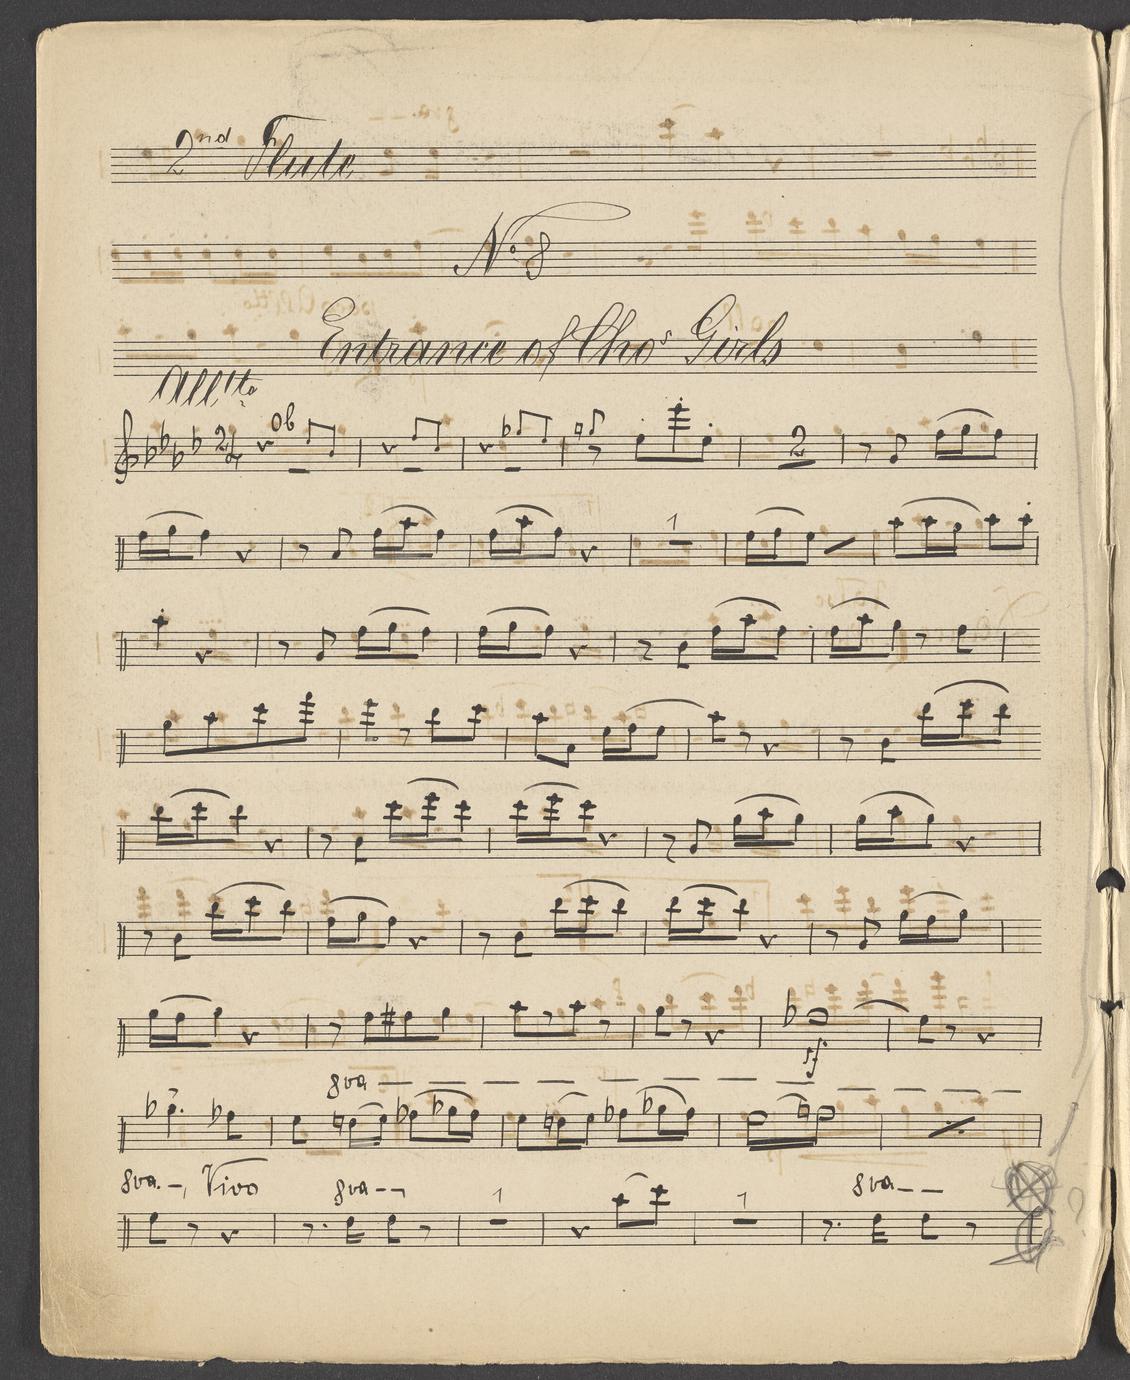 2nd Flute
No. 8
Entrance of Chos Girls
Alltto
Ob
2
4
2
1
sf
8va
8va Vivo 8va 8va
1 1